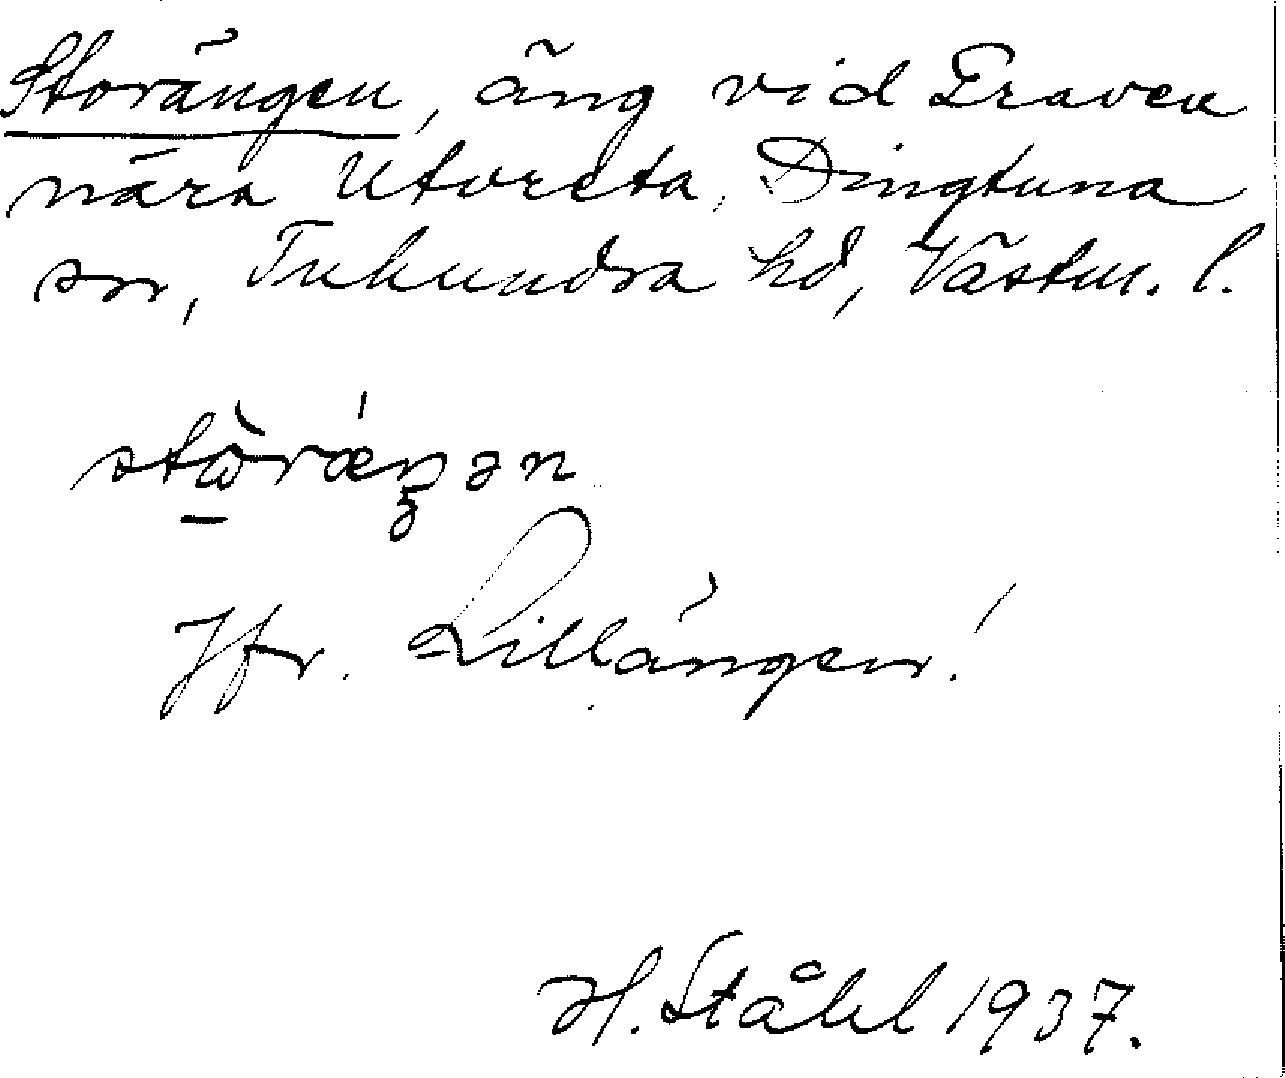 Storängen, äng vid Fraven
nära Utvreta, Dingtuna
sn, Tuhundra hd, Västm. l.
Jfr. Lillängen!
H. Ståhl 1937.